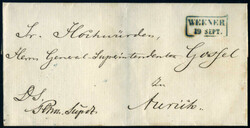 WEENER
19 SEPT.
Sr. Hochwürden,
Herrn General-Superintendenten Gossel
in
Aurich
D. S.